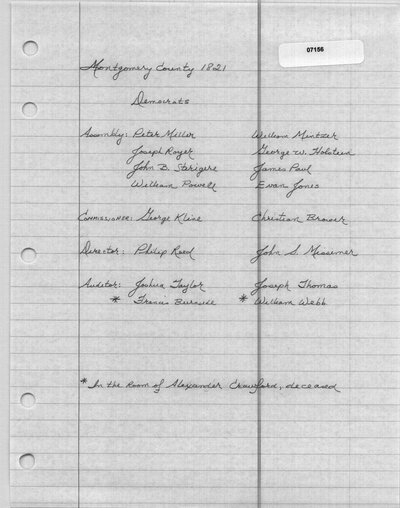 07156
Montgomery County 1821
Democrats
Assembly: Peter Miller William Mintzer
Joseph Royer George W. Holstein
John B. Sterigere James Paul
William Powell Evan Jones
Commissioner: George Kline Christian Brower
Director: Philip Reed John S. Missimer
Auditor: Joshua Taylor Joseph Thomas
* Francis Burnside * William Webb
* In the Room of Alexander Crawford, deceased